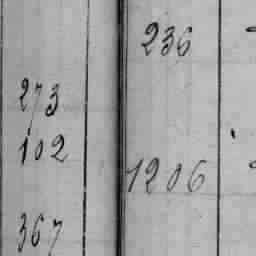 273
102
367
236
1206